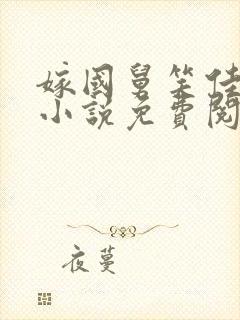 嫁國舅笑佳
小說免費閱
夜蔓